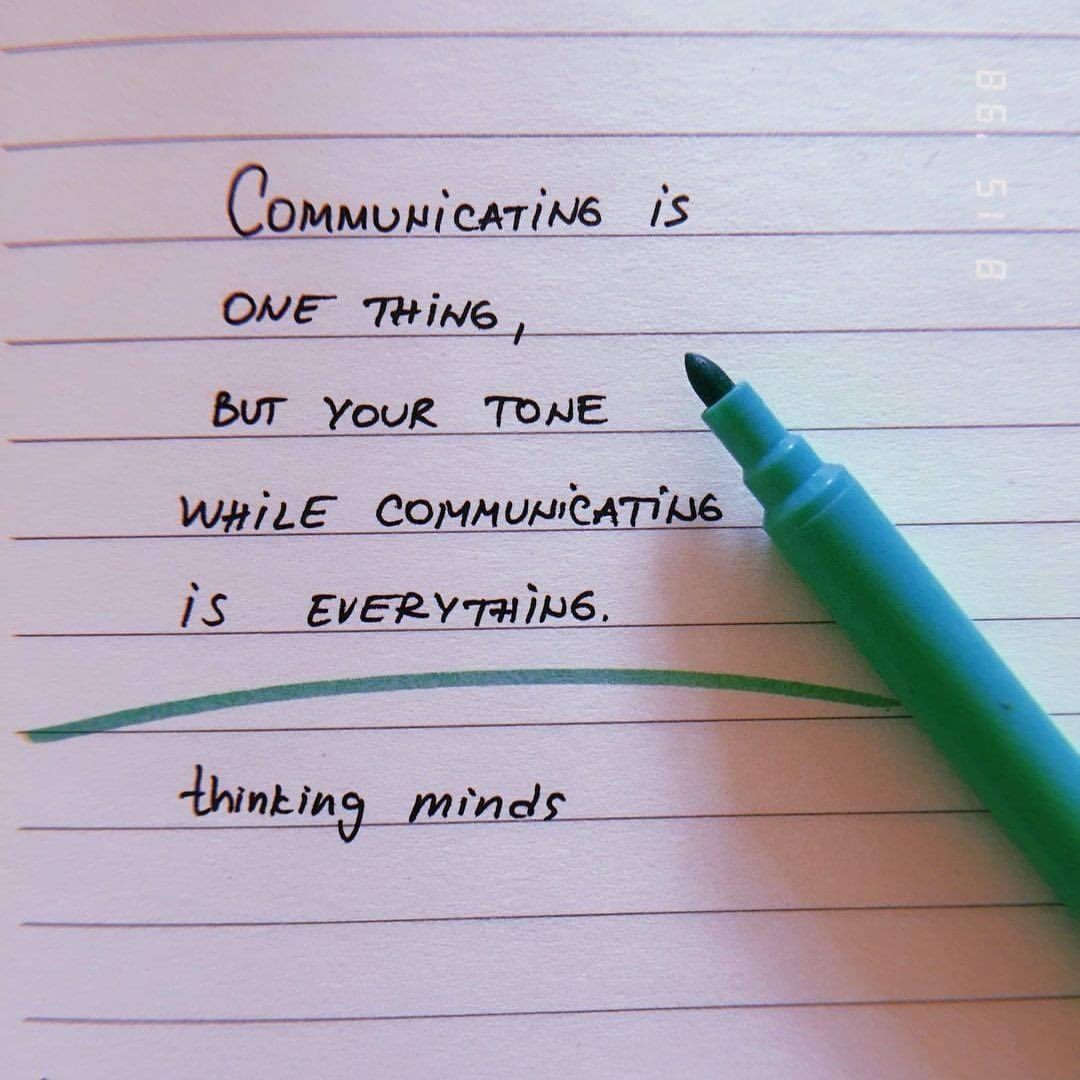 COMMUNiCATiNG iS
ONE THiNG,
BUT YOUR TONE
WHiLE COMMUNiCATiNG
iS EVERYTHiNG.
thinking minds